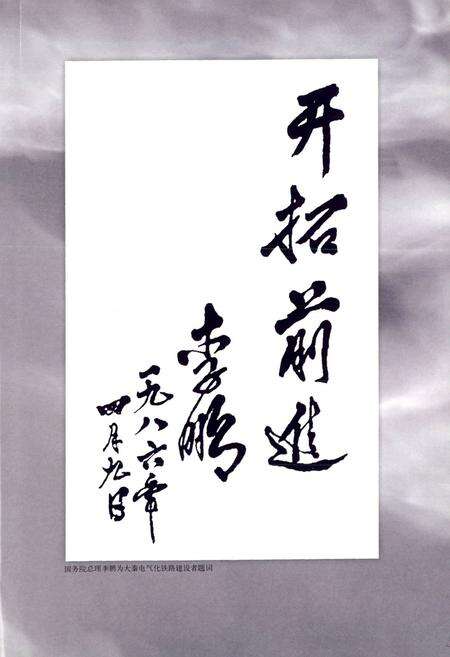 开拓前進
李鹏
一九八六年
四月九日
国务院总理李鹏为大秦电气化铁路建设者题词